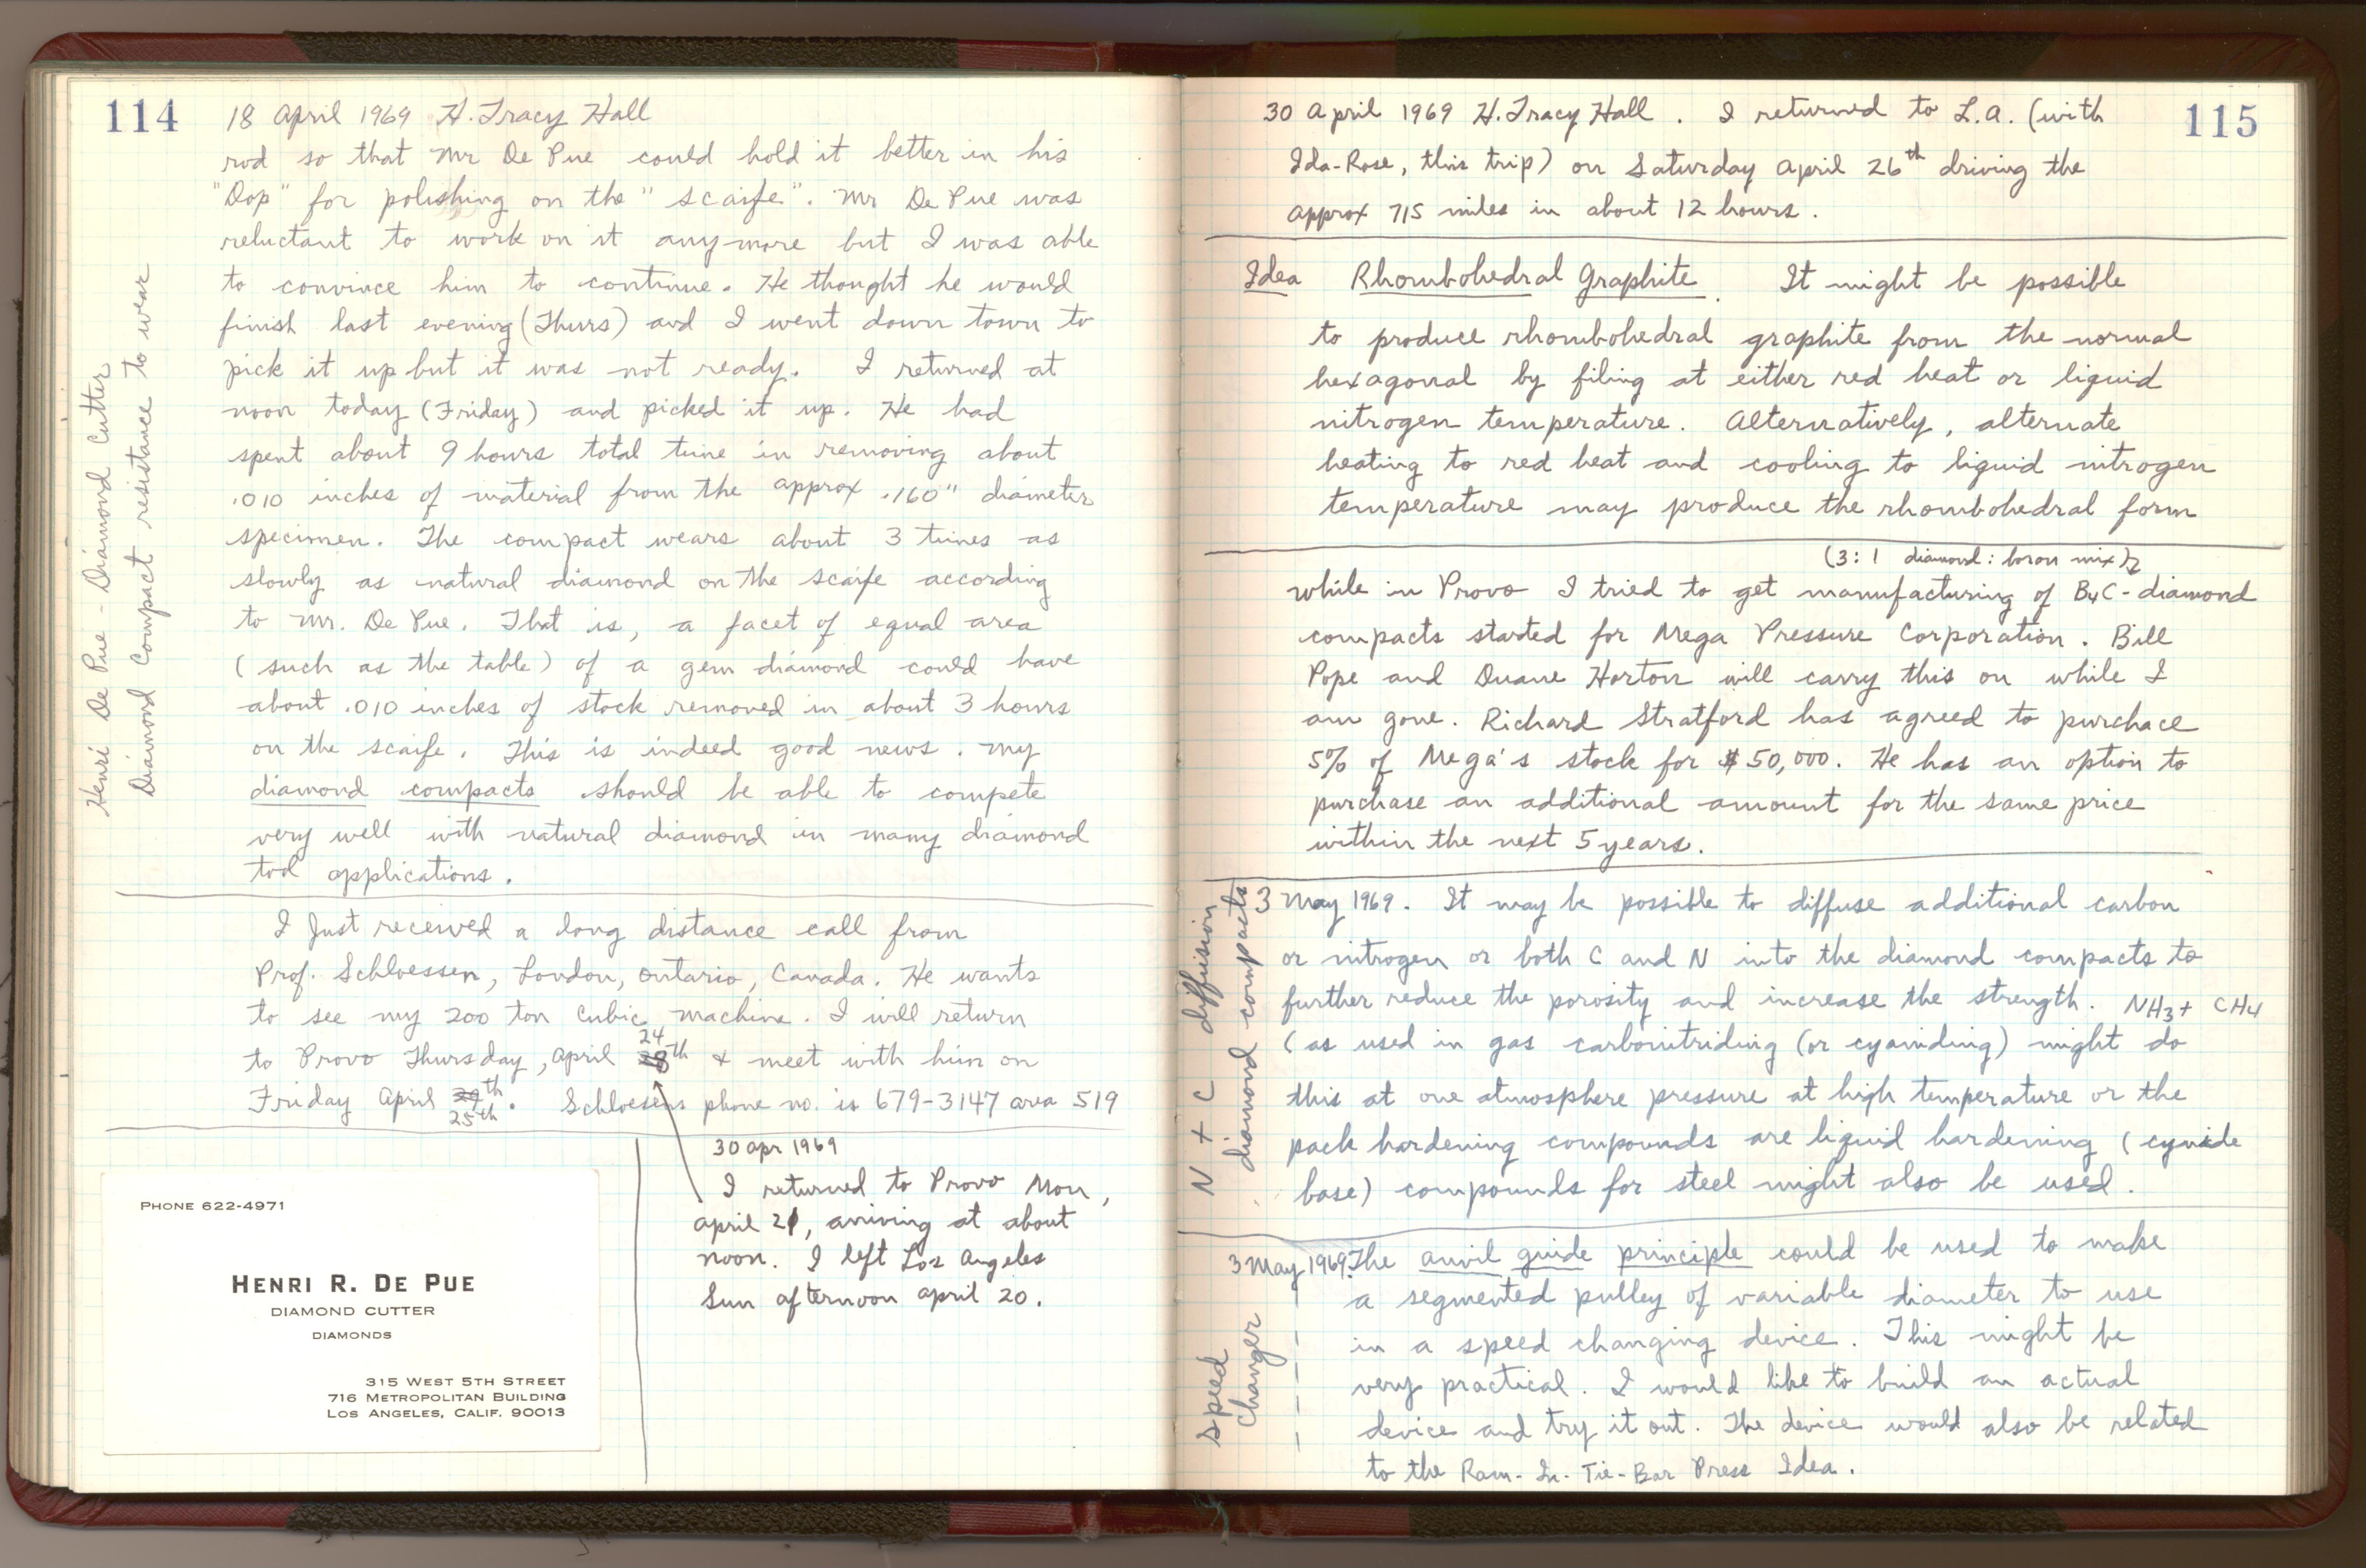 114
18 April 1969 H. Tracy Hall
rod so that Mr De Pue could hold it better in his
"Dop" for polishing on the "scaife". Mr De Pue was
reluctant to work on it anymore but I was able
to convince him to continue. He thought he would
finish last evening (Thurs) and I went down town to
pick it up but it was not ready. I returned at
noon today (Friday) and picked it up. He had
spent about 9 hours total time in removing about
.010 inches of material from the approx .160" diameter
specimen. The compact wears about 3 times as
slowly as natural diamond on the scaife according
to Mr. De Pue. That is, a facet of equal area
(such as the table) of a gem diamond could have
about .010 inches of stock removed in about 3 hours
on the scaife. This is indeed good news. My
diamond compacts should be able to compete
very well with natural diamond in many diamond
tool applications.
Henri De Pue - Diamond Cutter
Diamond Compact resistance to wear
I Just received a long distance call from
Prof. Schloessen, London, Ontario, Canada. He wants
to see my 200 ton cubic machine. I will return
24
to Provo Thursday, April th & meet with him on
Friday April 29th. Schloesens phone no. is 679-3147 area 519
25th
30 Apr 1969
I returned to Provo Mon,
April 21, arriving at about
noon. I left Los Angeles
Sun afternoon April 20.
PHONE 622-4971
HENRI R. DE PUE
DIAMOND CUTTER
DIAMONDS
315 WEST 5TH STREET
716 METROPOLITAN BUILDING
LOS ANGELES, CALIF. 90013
115
30 April 1969 H. Tracy Hall. I returned to L.A. (with
Ida-Rose, this trip) on Saturday April 26th driving the
approx 715 miles in about 12 hours.
Idea Rhombohedral Graphite. It might be possible
to produce rhombohedral graphite from the normal
hexagonal by filing at either red heat or liquid
nitrogen temperature. Alternatively, alternate
heating to red heat and cooling to liquid nitrogen
temperature may produce the rhombohedral form
(3:1 diamond:boron mix)
while in Provo I tried to get manufacturing of B4C-diamond
compacts started for Mega Pressure Corporation. Bill
Pope and Duane Horton will carry this on while I
am gone. Richard Stratford has agreed to purchace
5% of Mega's stock for $50,000. He has an option to
purchase an additional amount for the same price
within the next 5 years.
N + C diffusion
diamond compacts
3 May 1969. It may be possible to diffuse additional carbon
or nitrogen or both C and N into the diamond compacts to
further reduce the porosity and increase the strength. NH3 + CH4
(as used in gas carbonitriding (or cyaniding) might do
this at one atmosphere pressure at high temperature or the
pack hardening compounds are liquid hardening (cynide
base) compounds for steel might also be used.
Speed
Changer
3 May 1969. The anvil guide principle could be used to make
a segmented pulley of variable diameter to use
in a speed changing device. This might be
very practical. I would like to build an actual
device and try it out. The device would also be related
to the Ram-In-Tie-Bar Press Idea.